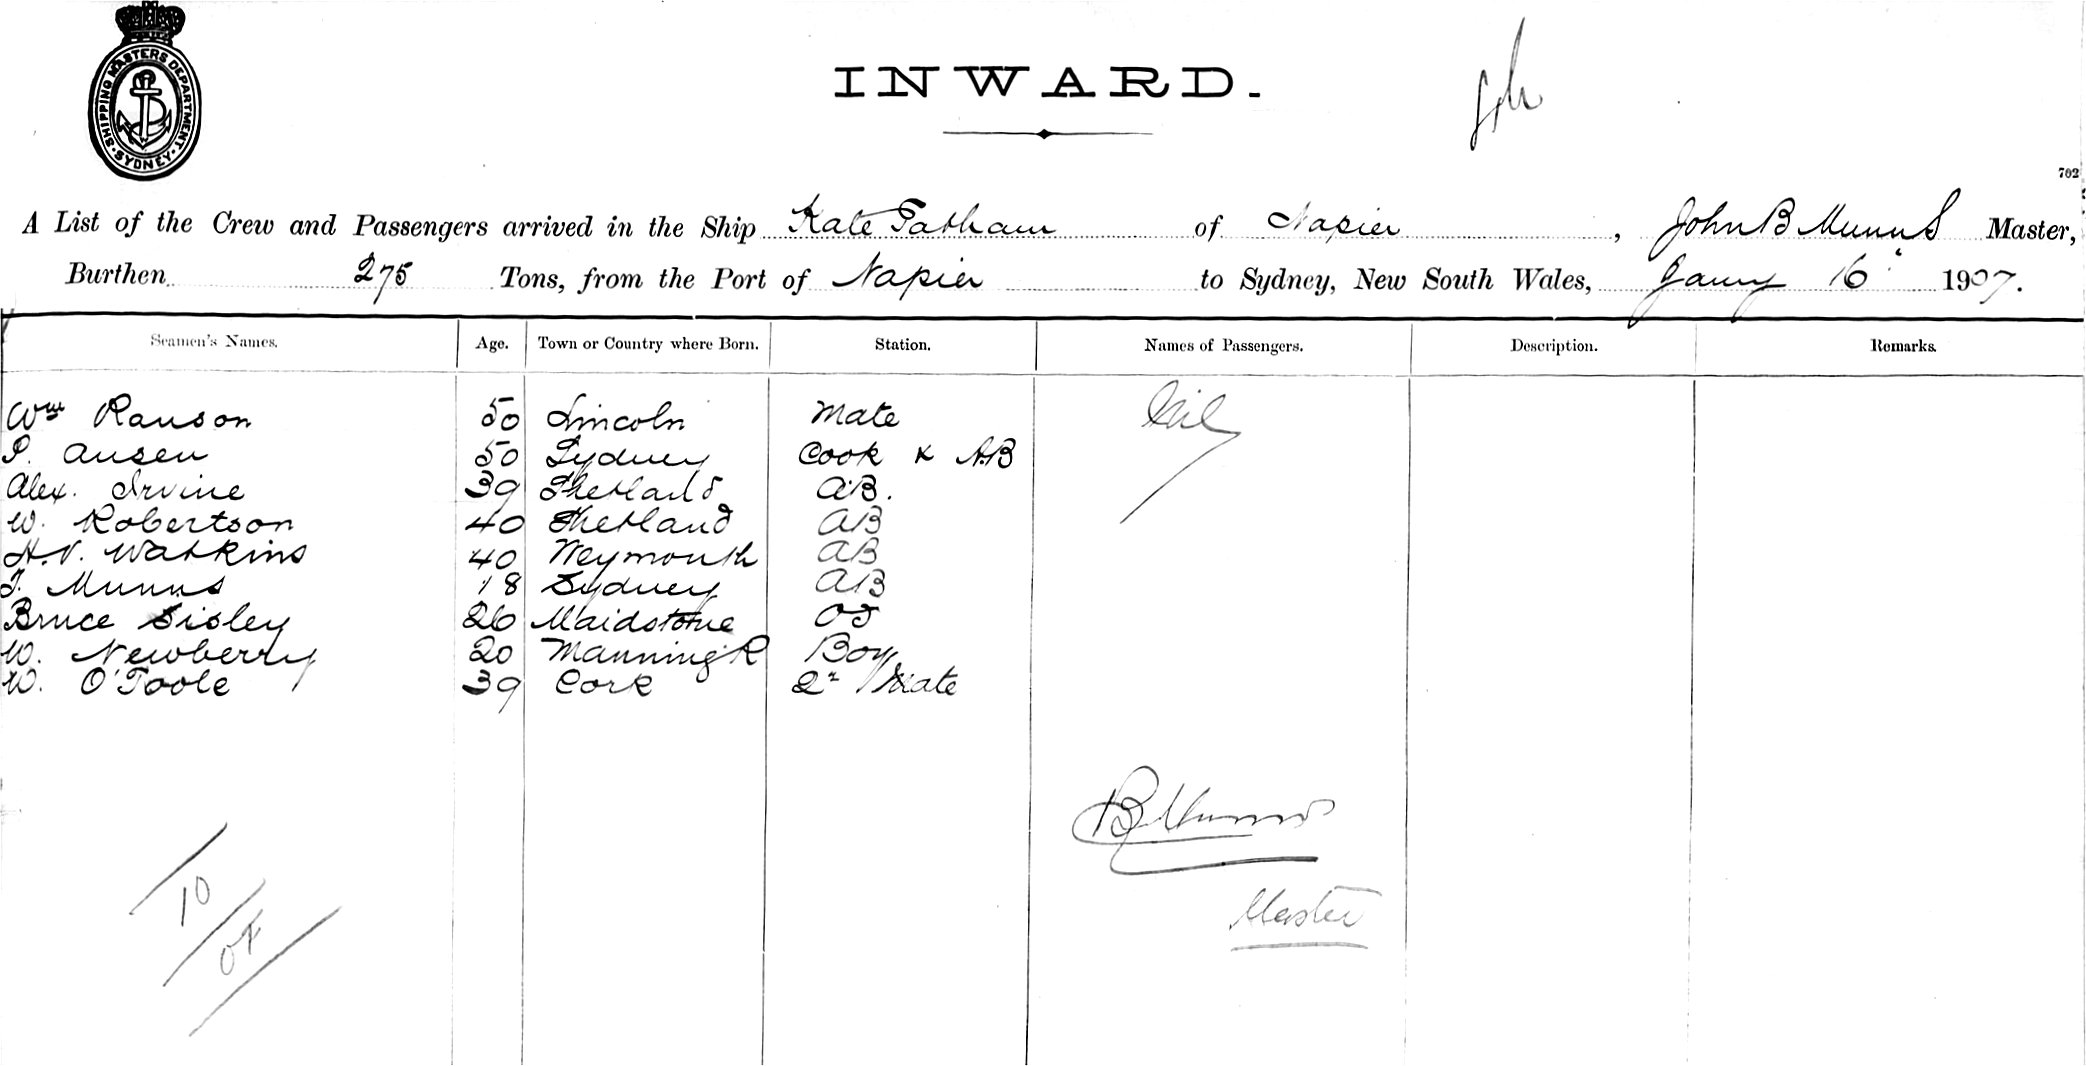 SHIPPING MASTERS DEPARTMENT. SYDNEY.
INWARD.
702
A List of the Crew and Passengers arrived in the Ship Kate Tatham of Napier, John B Munns Master,
Burthen 275 Tons, from the Port of Napier to Sydney, New South Wales, Jany 16 1907.
Seamen's Names. Age. Town or Country where Born. Station. Names of Passengers. Description. Remarks.
Wm Ranson 50 Lincoln Mate Nil
P. Ansen 50 Sydney Cook & AB
Alex. Irvine 39 Shetland AB.
W. Robertson 40 Shetland AB
H.V. Watkins 40 Weymouth AB
T. Munns 18 Sydney AB
Bruce Sisley 26 Maidstone OS
W. Newberry 20 Manning R Boy
W. O'Toole 39 Cork 2nd Mate
JB Munns
Master
10